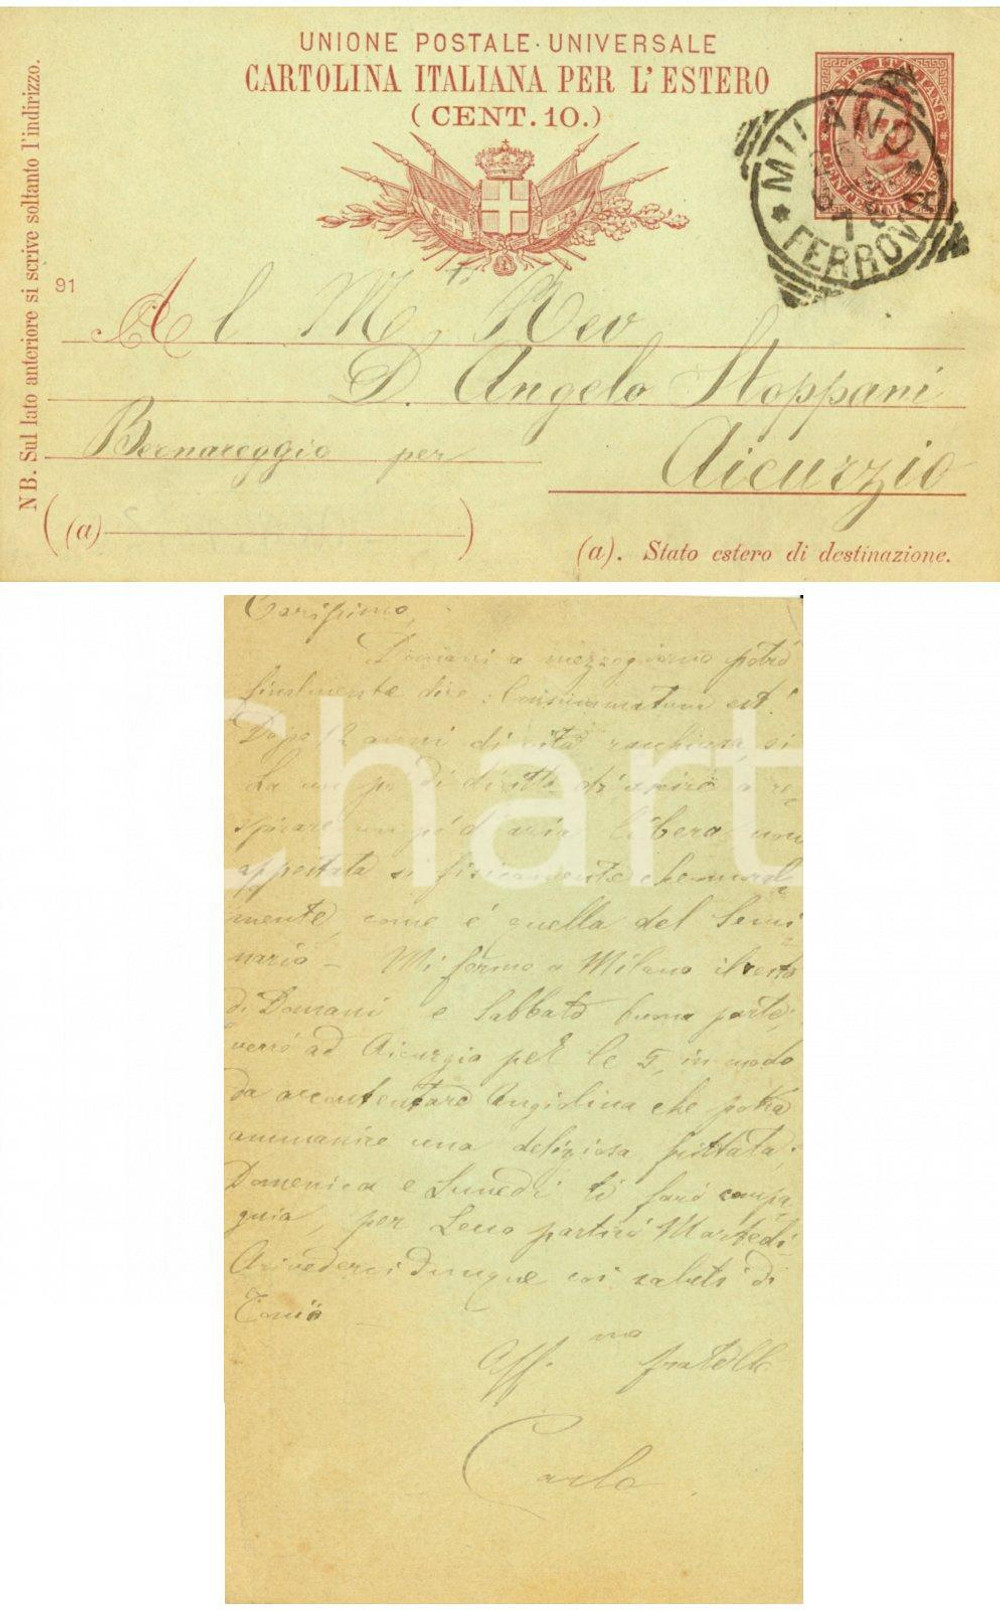 UNIONE POSTALE UNIVERSALE
CARTOLINA ITALIANA PER L'ESTERO
(CENT. 10.)
NB. Sul lato anteriore si scrive soltanto l'indirizzo.
91
MILANO
FERROVIA
Al M. Rev
D. Angelo Stoppani
Bernareggio per
Aicurzio
(a)
(a). Stato estero di destinazione.
Carissimo,
Domani a mezzogiorno potrò
finalmente dire: Consummatum est!
Dopo 12 anni di vita racchiusa, si
ha un po' di diritto di uscire a re-
spirare un po' d'aria libera, non
appestata sì fisicamente che moral-
mente, come è quella del Semi-
nario - Mi fermo a Milano il resto
di Domani e Sabbato buona parte;
verrò ad Aicurzio per le 5, in modo
da accontentare Angiolina che potrà
ammanire una deliziosa frittata;
Domenica e Lunedì ti farò compa-
gnia, per Lecco partirò Martedì
Arivederci dunque coi saluti di
Aff.mo fratello
Carlo
Chart